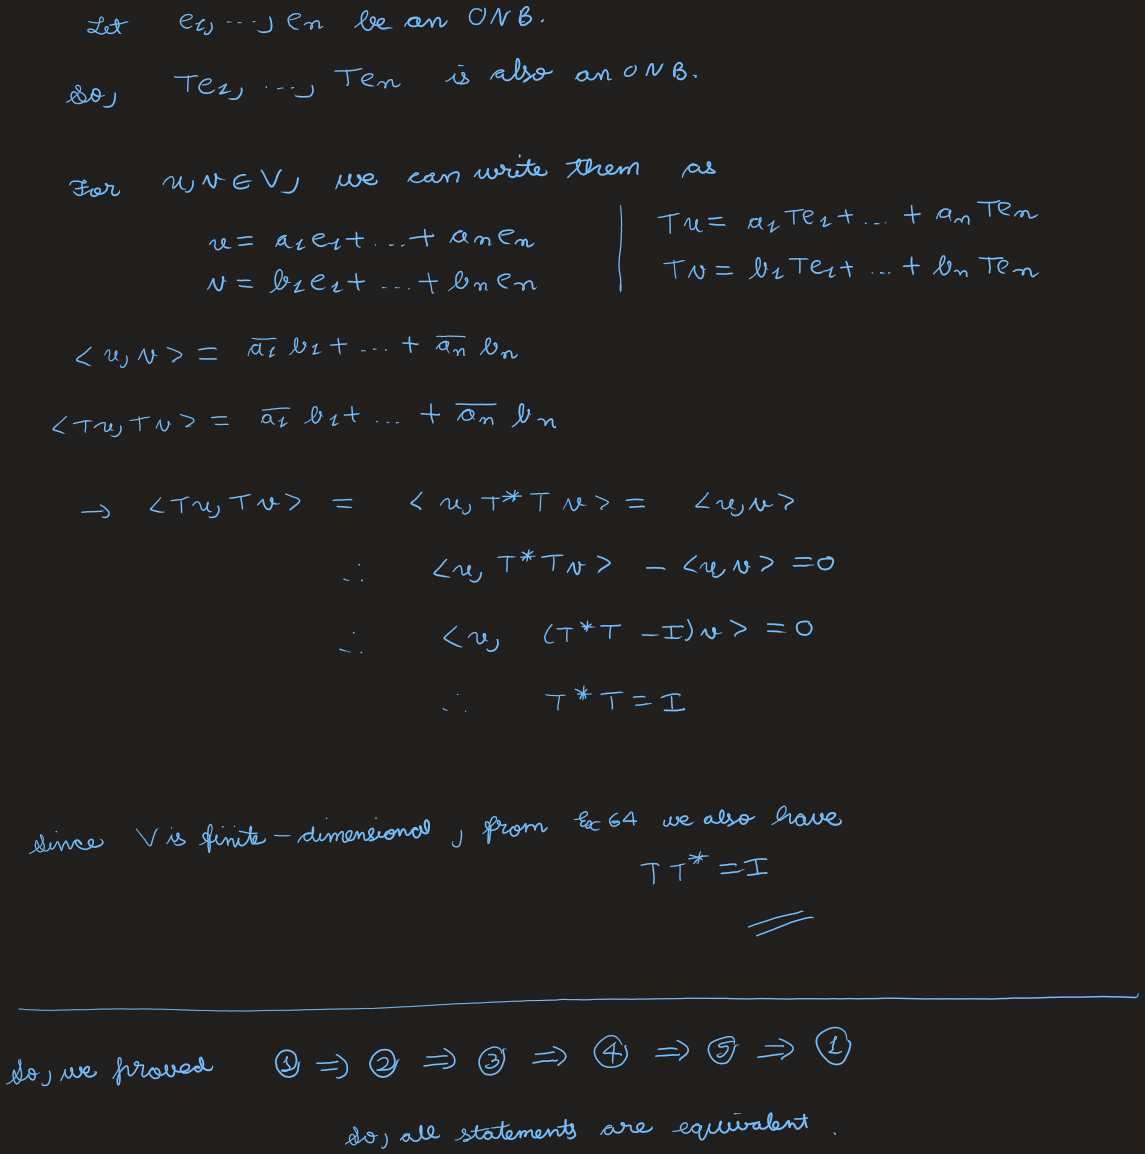 Let e₁, ..., en be an ONB.
So, Te₁, ..., Ten is also an ONB.
For u, v ∈ V, we can write them as
u = a₁e₁ + ... + anen | Tu = a₁Te₁ + ... + anTen
v = b₁e₁ + ... + bnen | Tv = b₁Te₁ + ... + bnTen
<u, v> = a̅₁ b₁ + ... + a̅n bn
<Tu, Tv> = a̅₁ b₁ + ... + a̅n bn
→ <Tu, Tv> = <u, T*Tv> = <u, v>
∴ <u, T*Tv> - <u, v> = 0
∴ <u, (T*T - I)v> = 0
∴ T*T = I
Since V is finite-dimensional, from Ex 64 we also have
TT* = I
So, we proved ① ⇒ ② ⇒ ③ ⇒ ④ ⇒ ⑤ ⇒ ①
So, all statements are equivalent.